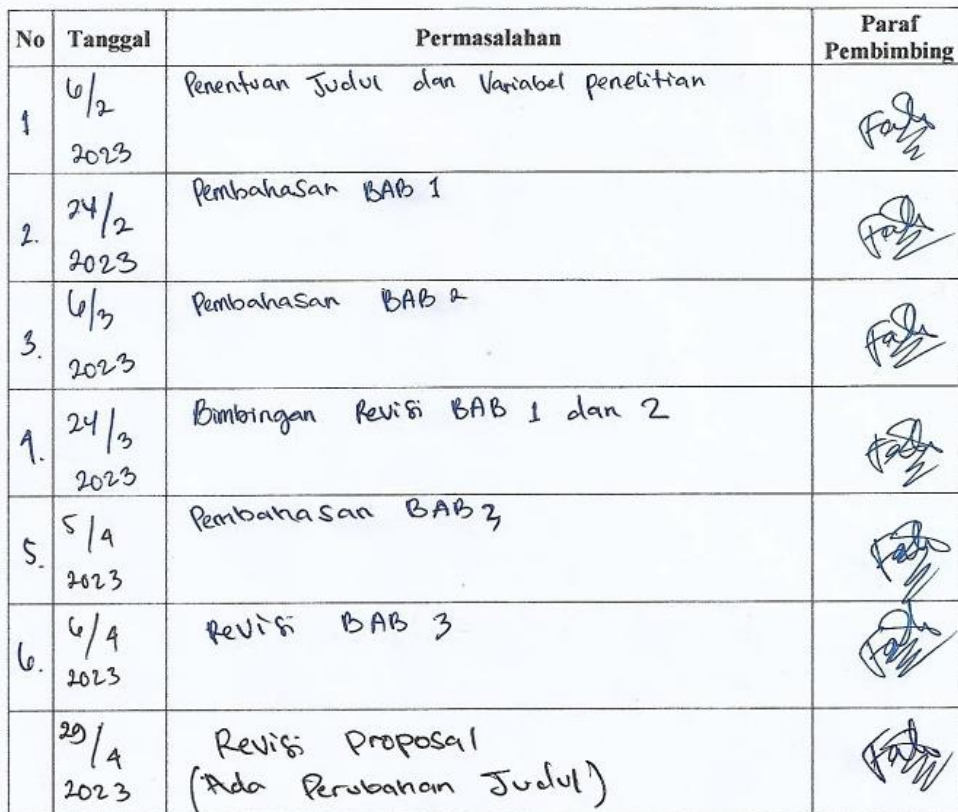 No Tanggal Permasalahan Paraf Pembimbing
1 6/2 2023 Penentuan Judul dan Variabel penelitian
2. 24/2 2023 Pembahasan BAB 1
3. 6/3 2023 Pembahasan BAB 2
4. 24/3 2023 Bimbingan Revisi BAB 1 dan 2
5. 5/4 2023 Pembahasan BAB 3
6. 6/4 2023 Revisi BAB 3
29/4 2023 Revisi Proposal
(Ada Perubahan Judul)